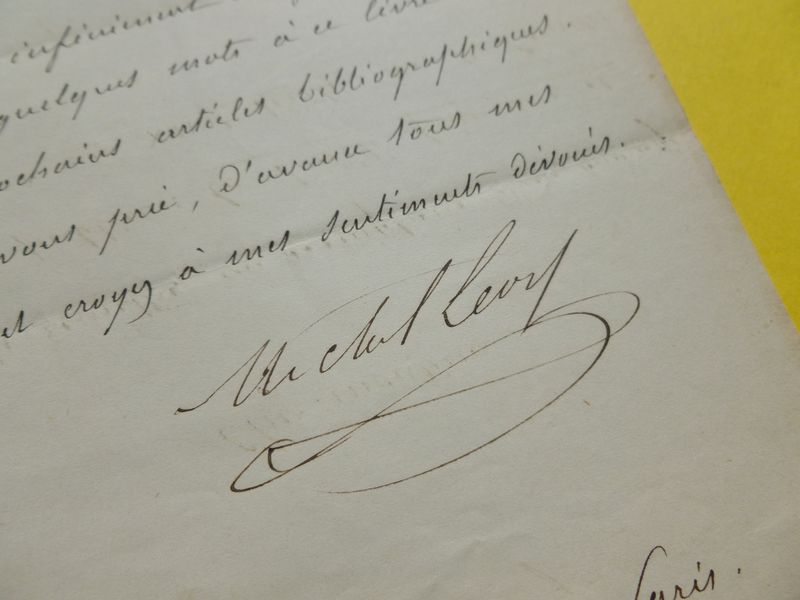 infiniment
quelques mots à ce livre
ochains articles bibliographiques.
vous prie, d'avance tous mes
et croyez à mes sentiments dévoués.
Michel Levy
Paris.